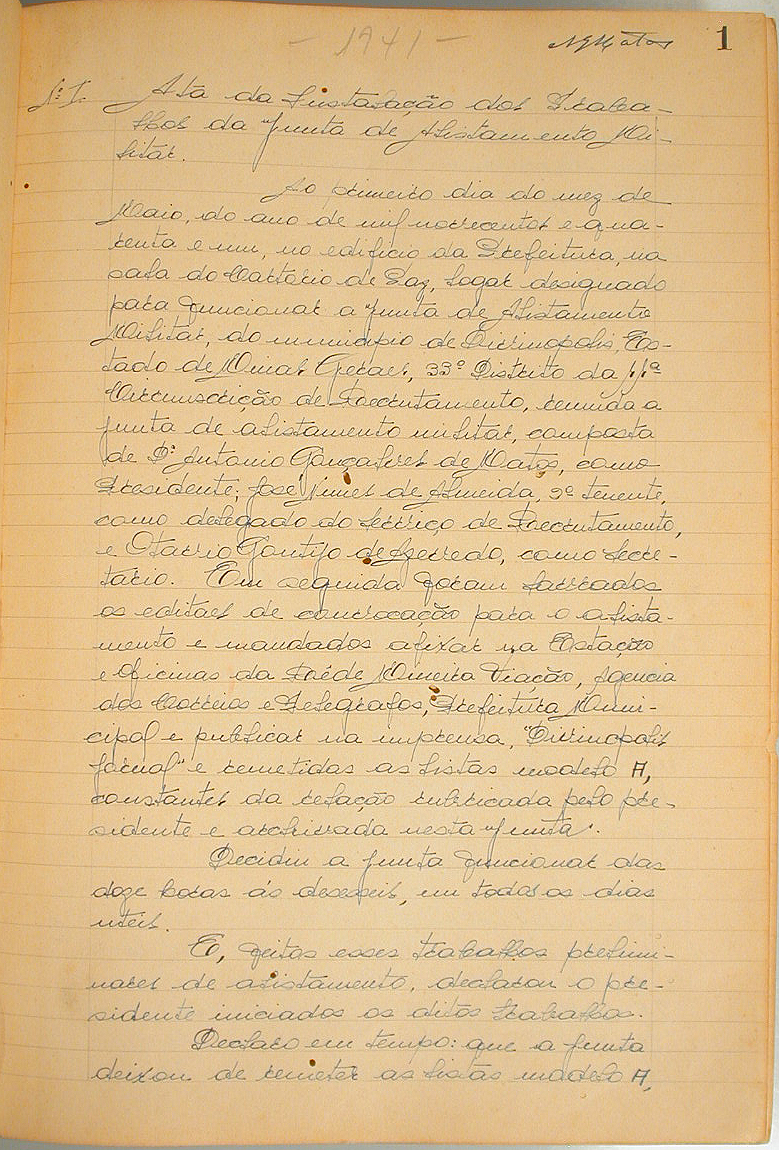 - 1941 -
AGMatos 1
Ata da Instalação dos Traba-
lhos da Junta de Alistamento Mi-
litar.
Ao primeiro dia do mez de
Maio, do ano de mil novecentos e qua-
renta e um, no edificio da Prefeitura, na
sala do Cartorio de Paz, logar designado
para funcionar a Junta de Alistamento
Militar, do municipio de Divinopolis, Es-
tado de Minas Geraes, 33º Distrito da 11ª
Circunscrição de Recrutamento, reunida a
junta de alistamento militar, composta
de Dr. Antonio Gonçalves de Matos, como
Presidente; José Nunes de Almeida, 2º tenente,
como delegado do Serviço de Recrutamento,
e Otavio Gontijo de Azevedo, como Secre-
tario. Em seguida foram lavrados
os editaes de convocação para o alista-
mento e mandados afixar na Estação
e Oficinas da Rêde Mineira Viação, Agencia
dos Correios e Telegrafos, Prefeitura Muni-
cipal e publicar na imprensa, "Divinopolis
Jornal" e remetidas as listas modelo A,
constantes da relação rubricada pelo pre-
sidente e archivada nesta Junta.
Decidiu a Junta funcionar das
doze horas ás deseseis, em todos os dias
uteis.
E, feitos esses trabalhos prelimi-
nares de alistamento, declarou o pre-
sidente iniciados os ditos trabalhos.
Declaro em tempo: que a Junta
deixou de remeter as listas modelo A,